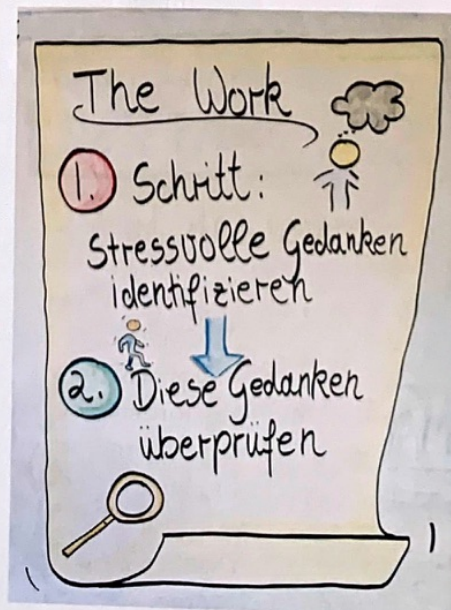 The Work
1. Schritt:
Stressvolle Gedanken
identifizieren
2. Diese Gedanken
überprüfen